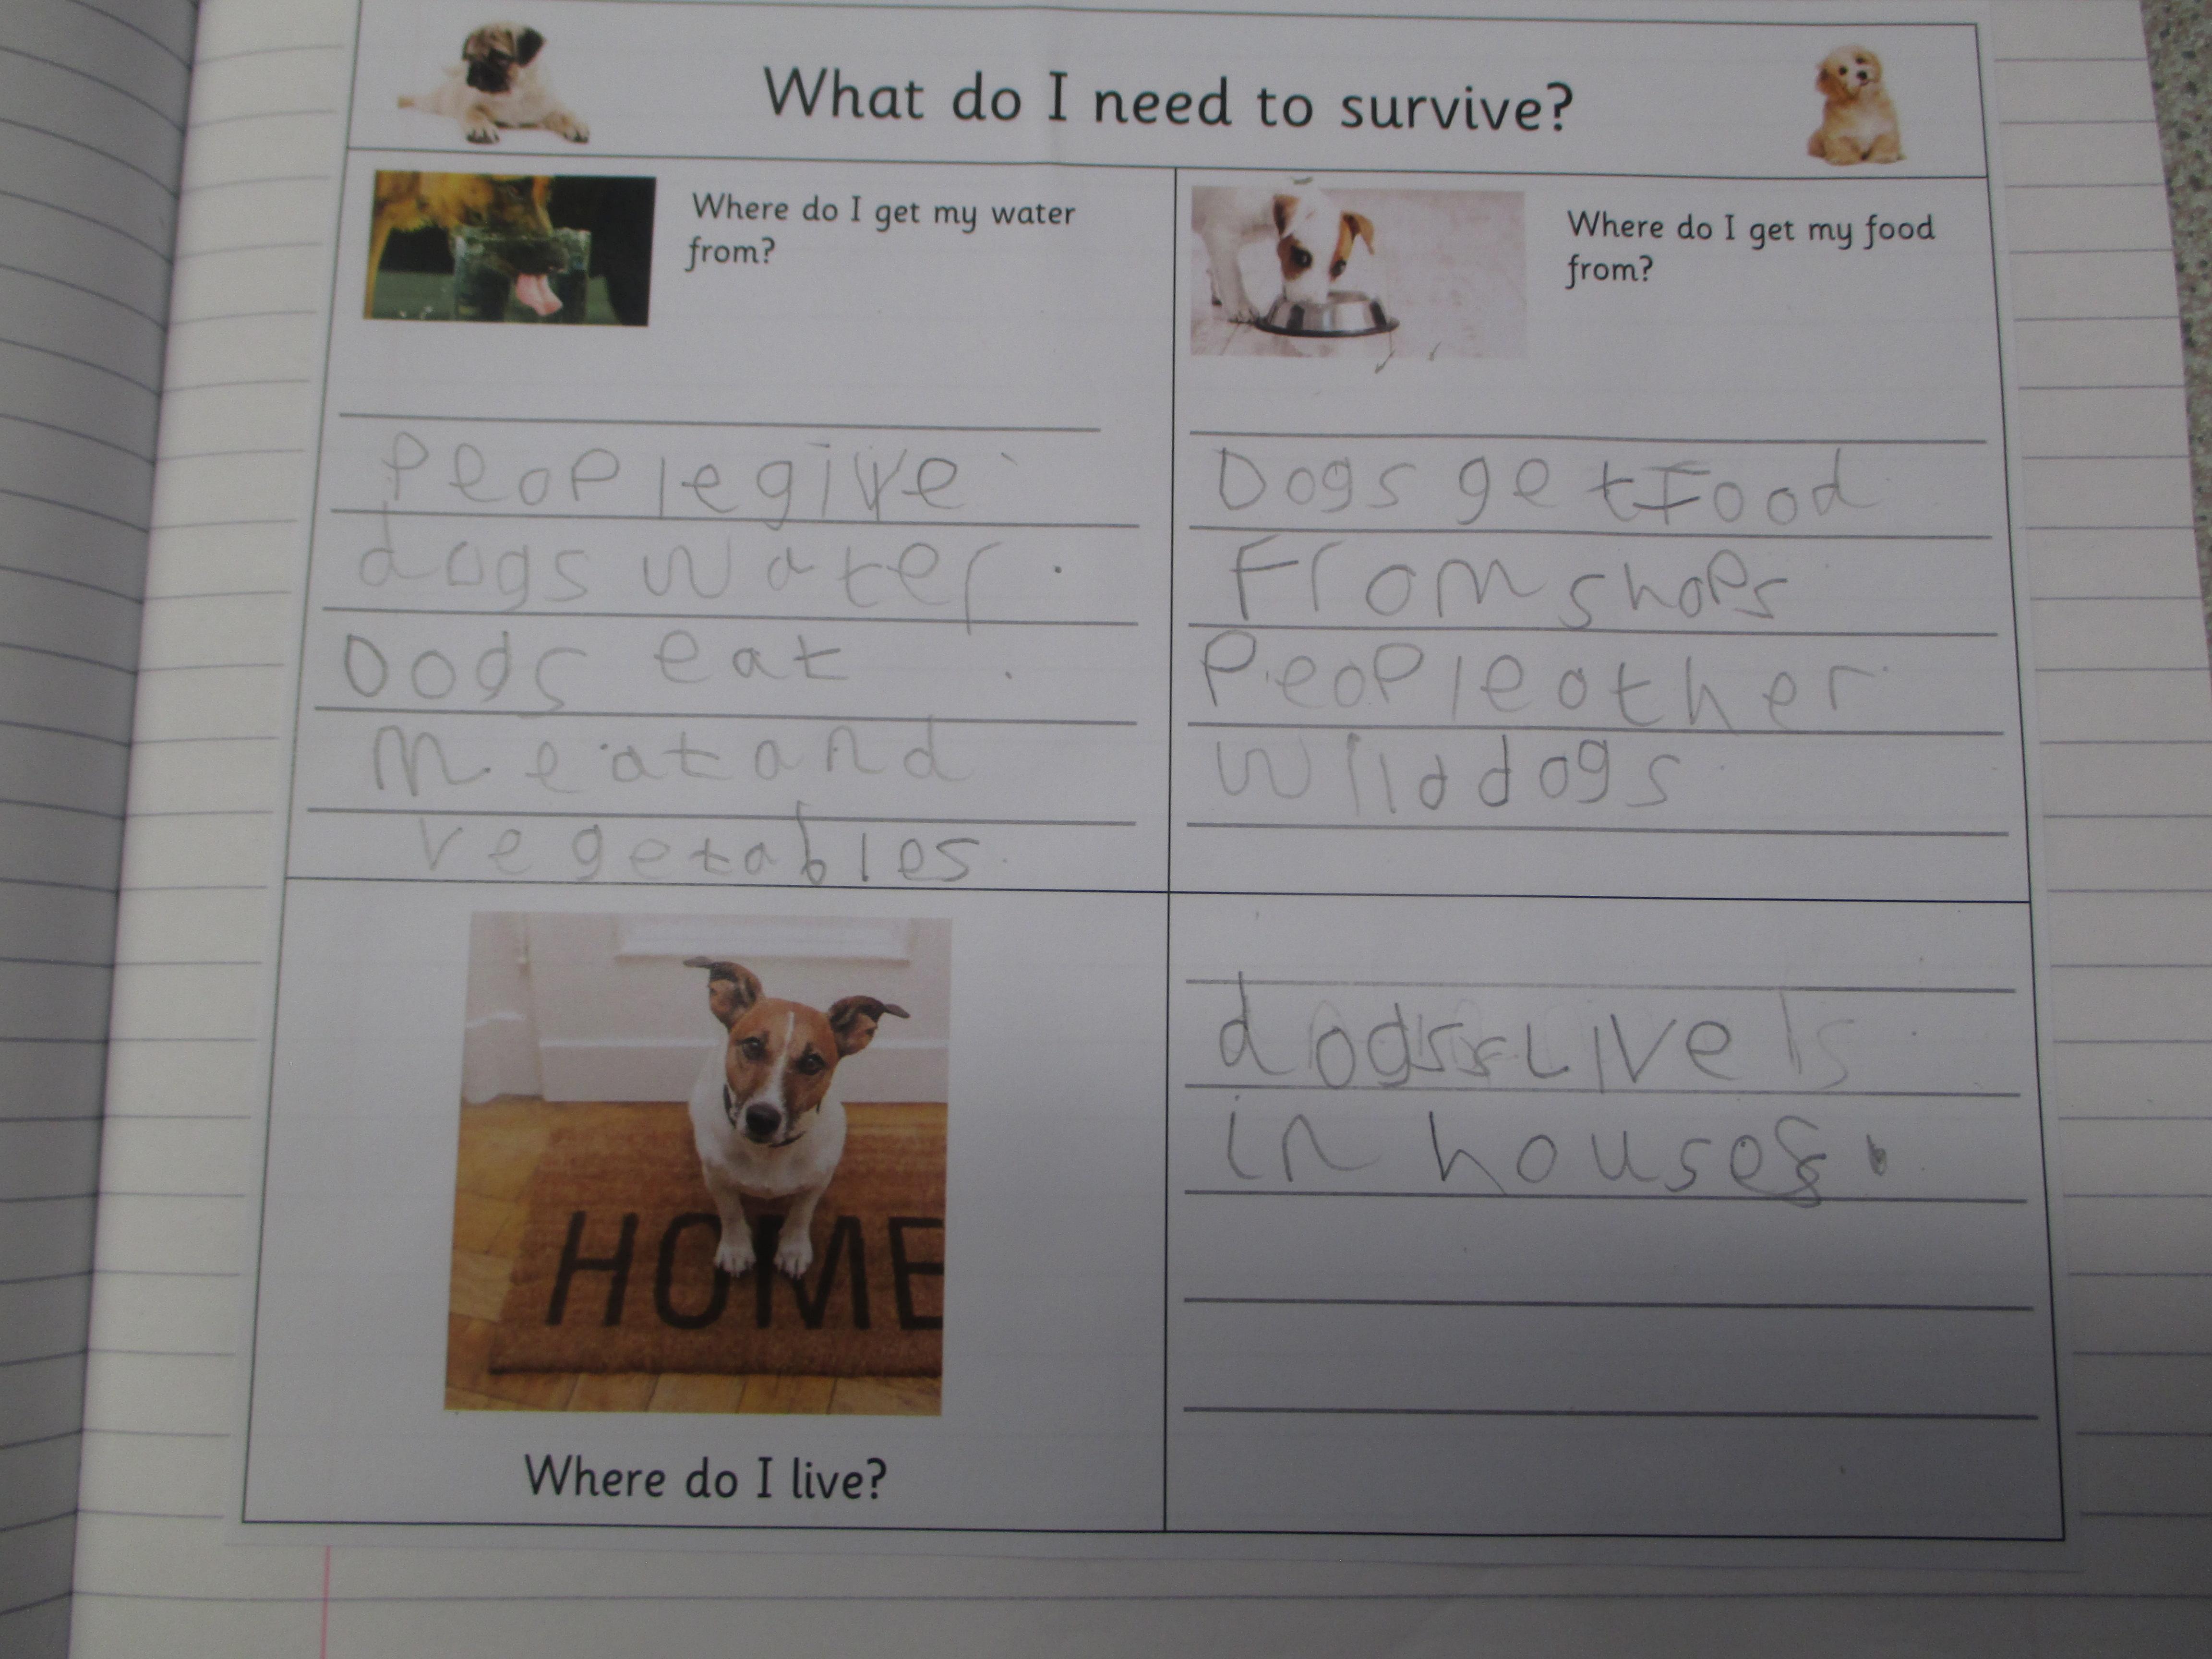 What do I need to survive?
Where do I get my water
from?
People give
dogs water.
Dods eat
meat and
vegetables
Where do I get my food
from?
Dogs get Food
From shops
People other
wild dogs
HOME
Where do I live?
dogs Live
in houses.